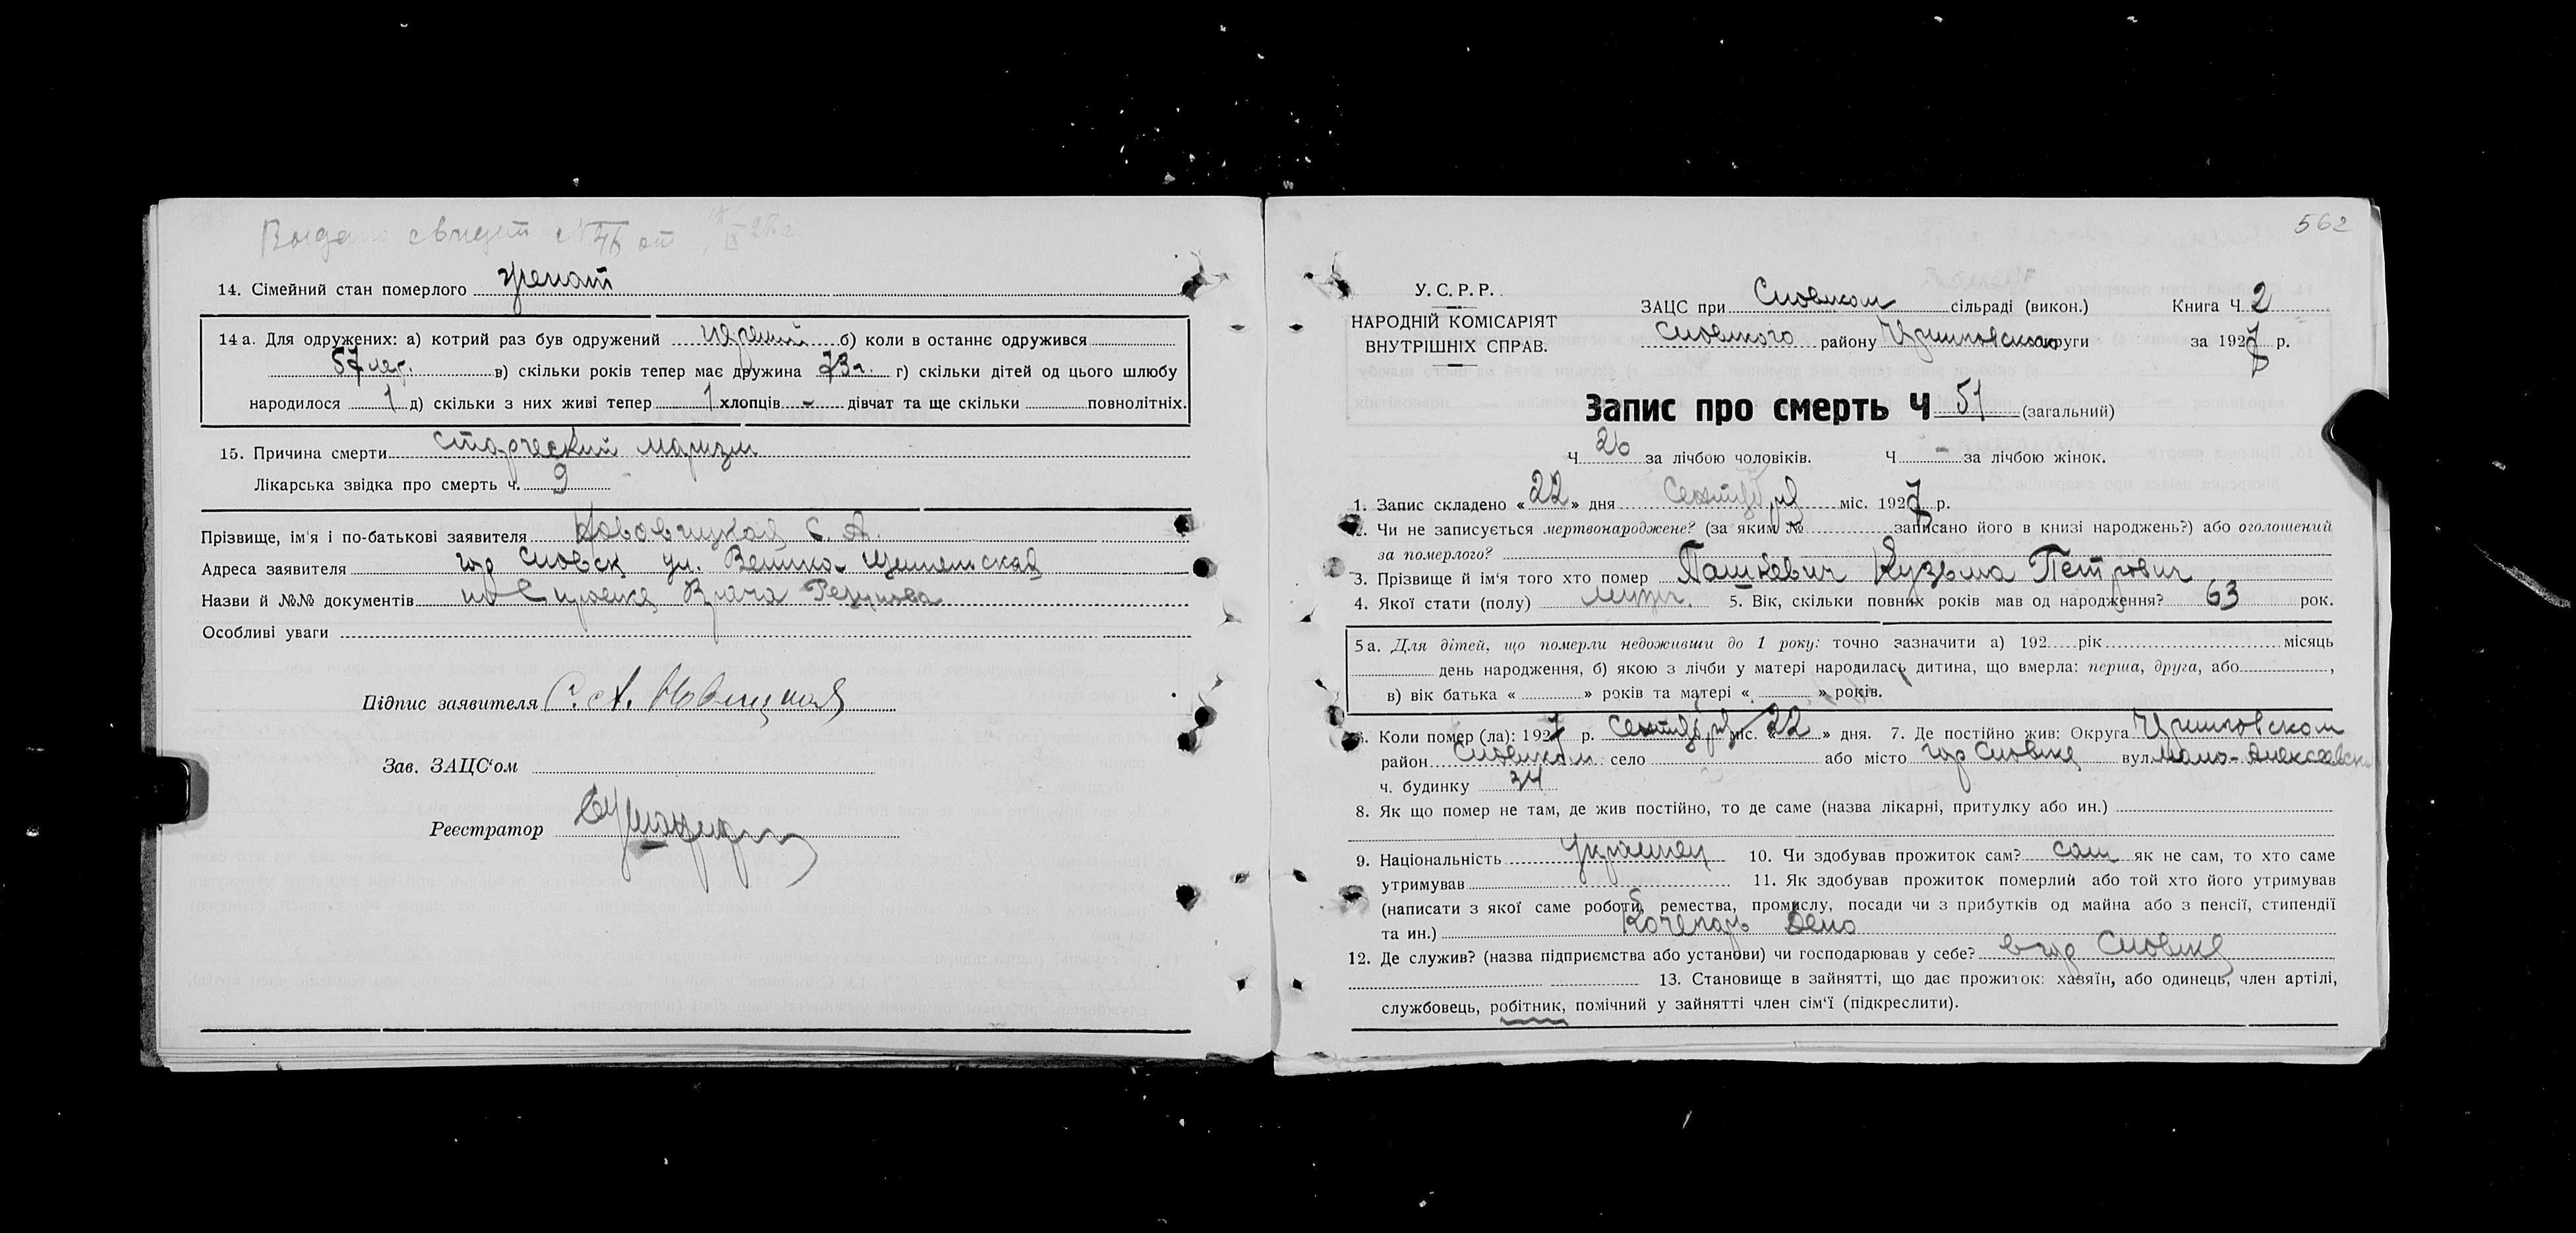 Выдано свидет № 46 от
14. Сімейний стан померлого женат
14 а. Для одружених: а) котрий раз був одружений первый б) коли в останнє одружився
57 лет. в) скільки років тепер має дружина 73 г. г) скільки дітей од цього шлюбу
народилося 1 д) скільки з них живі тепер 1 хлопців - дівчат та ще скільки повнолітніх.
15. Причина смерти старческий маразм
Лікарська звідка про смерть ч. 9
Прізвище, ім'я і по-батькові заявителя С. А.
Адреса заявителя гор Сновск ул.
Назви й №№ документів Справка Врача
Особливі уваги
Підпис заявителя С. А. Новицкая
Зав. ЗАЦС'ом
Реєстратор
562
У. С. Р. Р.
НАРОДНІЙ КОМІСАРІЯТ
ВНУТРІШНІХ СПРАВ.
ЗАЦС при Сновском сільраді (викон.) Книга Ч. 2
Сновского району округи за 1927 р.
Запис про смерть Ч 51 (загальний)
Ч 26 за лічбою чоловіків. Ч - за лічбою жінок.
1. Запис складено « 22 » дня сентября міс. 1927 р.
2. Чи не записується мертвонароджене? (за яким № записано його в книзі народжень?) або оголошений
за померлого?
3. Прізвище й ім'я того хто помер Пашкевич Кузьма Петрович
4. Якої стати (полу) 5. Вік, скільки повних років мав од народження? 63 рок.
5 а. Для дітей, що померли недоживши до 1 року: точно зазначити а) 192 рік місяць
день народження, б) якою з лічби у матері народилась дитина, що вмерла: перша, друга, або ,
в) вік батька « » років та матері « » років.
6. Коли помер (ла): 1927 р. сентября міс. « 22 » дня. 7. Де постійно жив: Округа
район Сновском село або місто гор Сновск вул. Мало-Алексеевск
ч. будинку 34
8. Як що помер не там, де жив постійно, то де саме (назва лікарні, притулку або ин.)
9. Національність Украинец 10. Чи здобував прожиток сам? сам як не сам, то хто саме
утримував 11. Як здобував прожиток померлий або той хто його утримував
(написати з якої саме роботи, ремества, промислу, посади чи з прибутків од майна або з пенсії, стипендії
та ин.) Кочегар Депо
12. Де служив? (назва підприємства або установи) чи господарював у себе? в гор Сновске
13. Становище в зайнятті, що дає прожиток: хазяїн, або одинець, член артілі,
службовець, робітник, помічний у зайнятті член сім'ї (підкреслити).